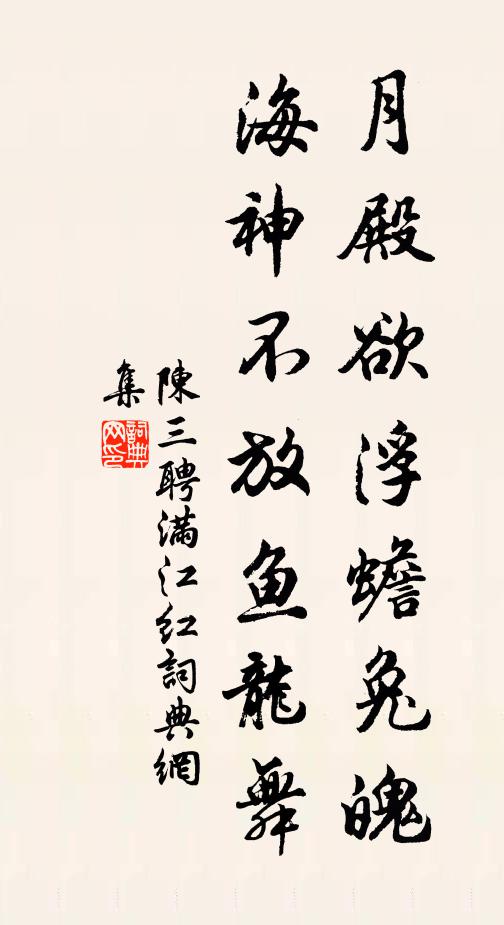 月殿欲浮蟾兔魄
海神不放鱼龍舞
陳三聘滿江紅詞典網
集
詞典网印